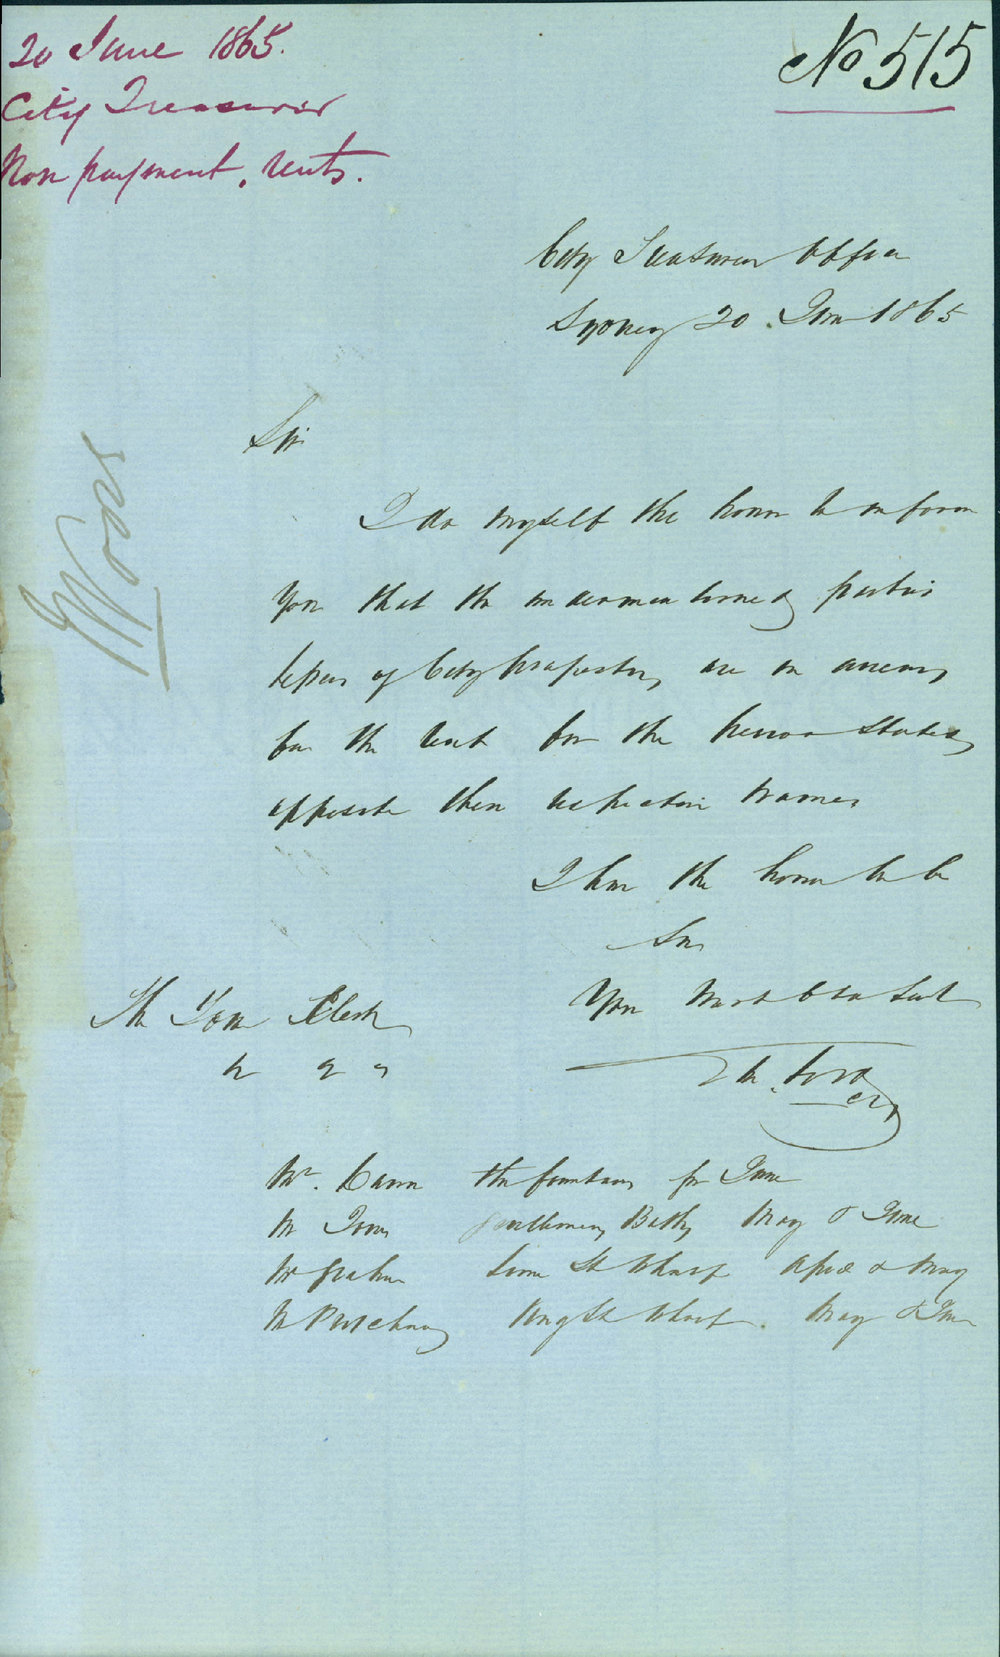 20 June 1865.
City Treasurer
Non payment, rents.
No 515
City Treasurers Office
Sydney 20 June 1865
Sir
I do myself the honor to inform
you that the undermentioned parties
lessees of City property, are in arrears
for the rent for the period stated
opposite their respective names
I have the honor to be
Sir
Your most obt Servt
The Town Clerk
Woods
Mr. the fountains for June
Mr Gentlemens Baths May & June
Mr Graham Lime St Wharf April & May
Mr Wharf. May & June